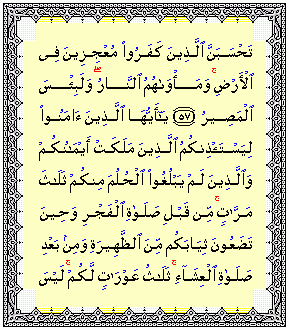 تَحْسَبَنَّ ٱلَّذِينَ كَفَرُوا۟ مُعْجِزِينَ فِى
ٱلْأَرْضِ ۚ وَمَأْوَىٰهُمُ ٱلنَّارُ ۖ وَلَبِئْسَ
ٱلْمَصِيرُ ﴿٥٧﴾ يَـٰٓأَيُّهَا ٱلَّذِينَ ءَامَنُوا۟
لِيَسْتَـْٔذِنكُمُ ٱلَّذِينَ مَلَكَتْ أَيْمَـٰنُكُمْ
وَٱلَّذِينَ لَمْ يَبْلُغُوا۟ ٱلْحُلُمَ مِنكُمْ ثَلَـٰثَ
مَرَّٰتٍ ۚ مِّن قَبْلِ صَلَوٰةِ ٱلْفَجْرِ وَحِينَ
تَضَعُونَ ثِيَابَكُم مِّنَ ٱلظَّهِيرَةِ وَمِنۢ بَعْدِ
صَلَوٰةِ ٱلْعِشَآءِ ۚ ثَلَـٰثُ عَوْرَٰتٍ لَّكُمْ ۚ لَيْسَ